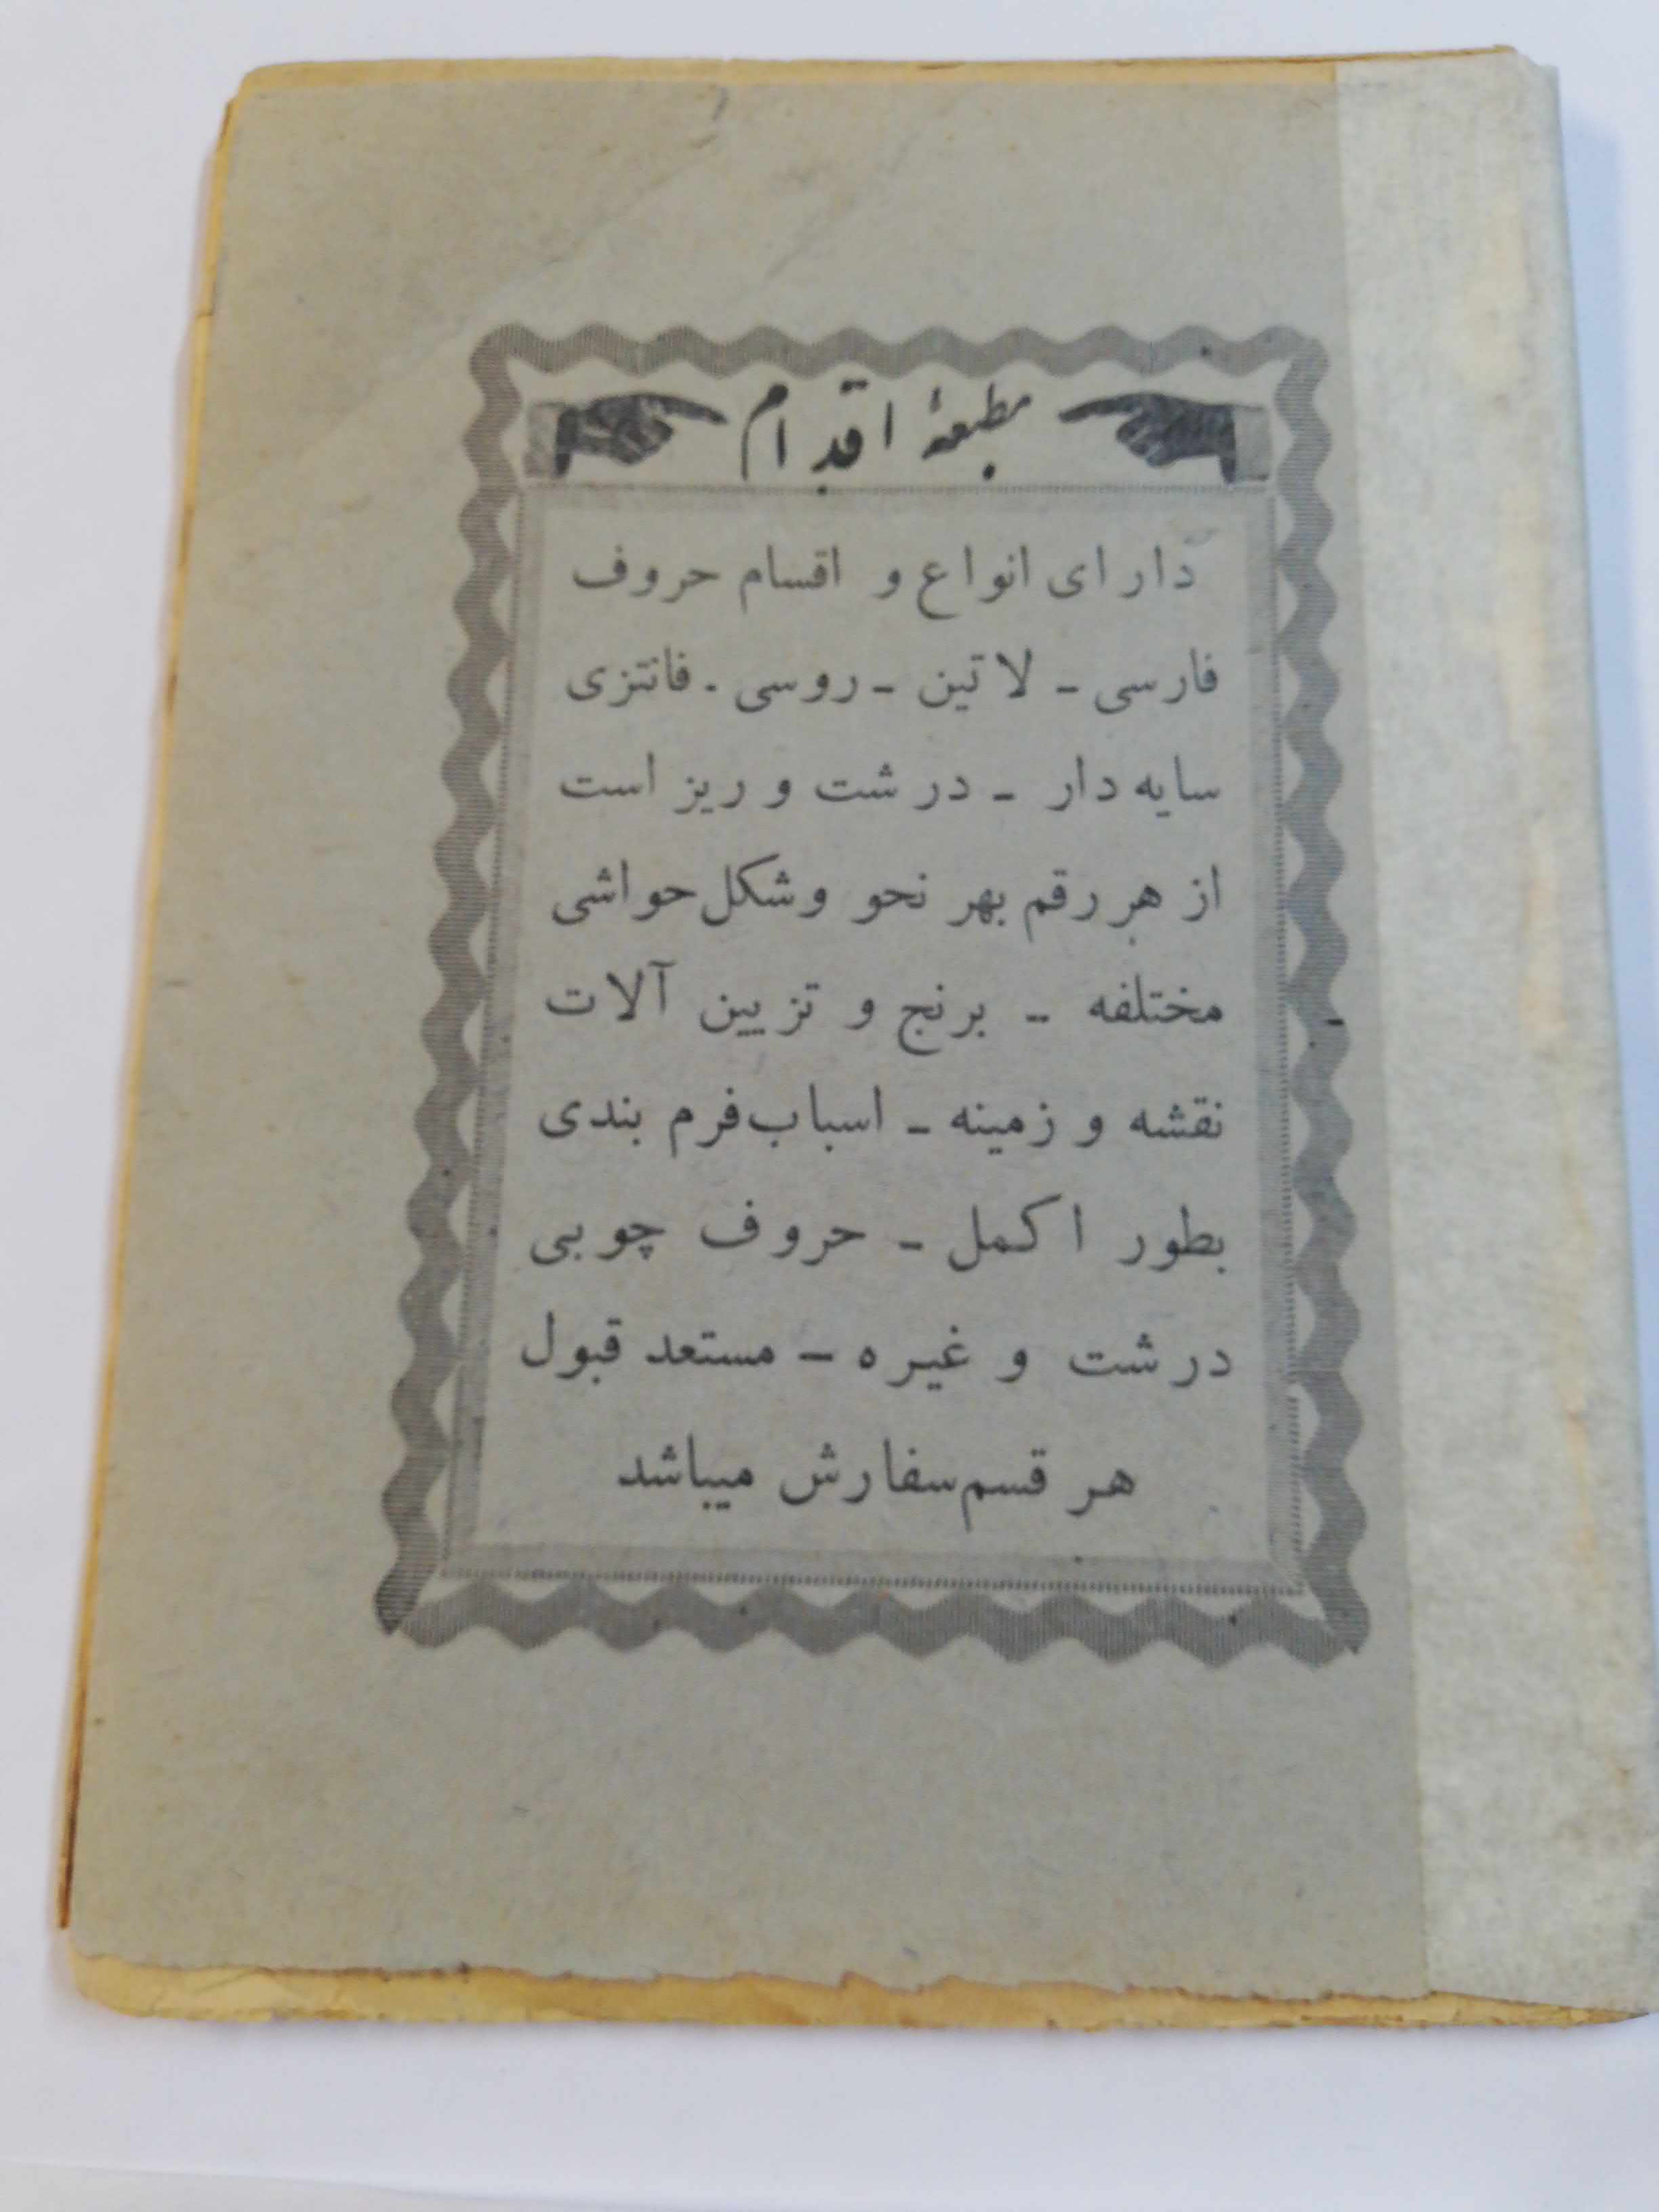 مطبعهٔ اقدام
دارای انواع و اقسام حروف
فارسی ـ لاتین ـ روسی ـ فانتزی
سایه دار ـ درشت و ریز است
از هر رقم بهر نحو و شکل حواشی
مختلفه ـ برنج و تزیین آلات
نقشه و زمینه ـ اسباب فرم بندی
بطور اکمل ـ حروف چوبی
درشت و غیره ـ مستعد قبول
هر قسم سفارش میباشد